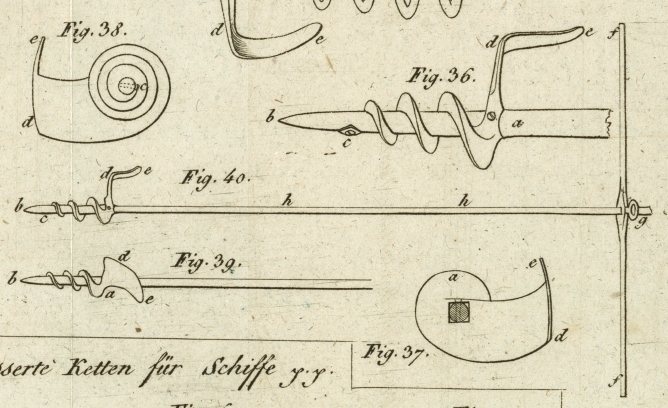 d e
Fig. 38.
e
d
c
Fig. 36.
d e
b
c
a
f
Fig. 40.
d e
b
c
h h
g
Fig. 39.
b
d
a
e
Fig. 37.
a
e
d
f
sserte Ketten für Schiffe p.p.